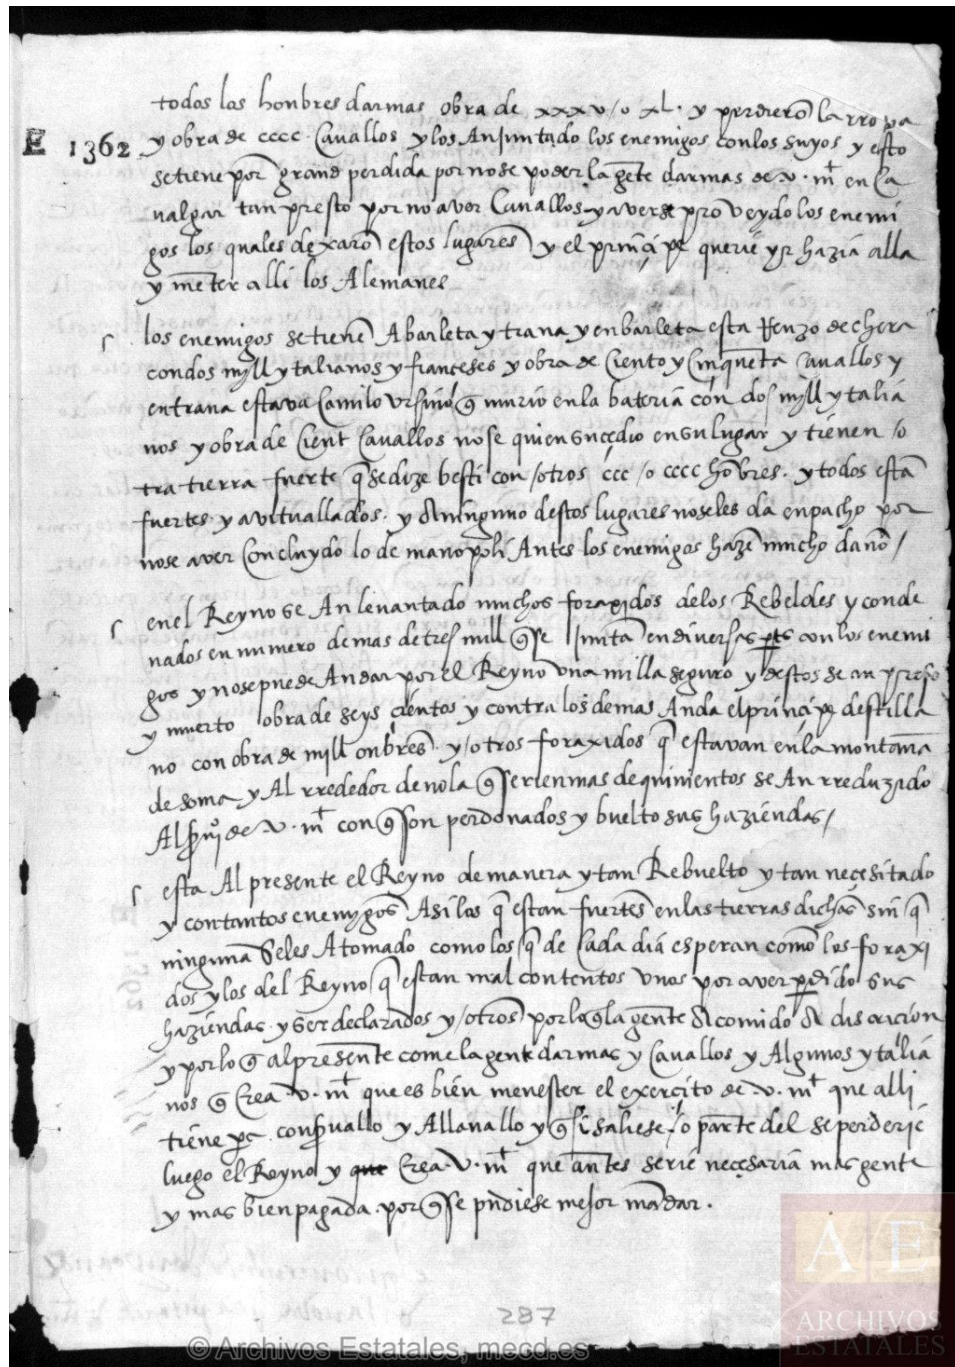 todos los honbres darmas obra de xxxv /o xl. y perdierō la rropa
E 1362 y obra de cccc. Cavallos y los An Juntado los enemigos con los suyos y esto
se tiene por grand perdida por no se poder la gēte darmas de v. mt en Ca
valgar tan presto por no aver Cavallos y averse proveydo los enemi
gos los quales dexarō estos lugares y el prinçipe querie yr hazia alla
y meter alli los Alemanes
los enemigos se tienē A barleta y trana y en barleta esta Renzo de chera
con dos myll ytalianos y franceses y obra de Ciento y Cinquēta Cavallos y
en trana estava Camilo Ursino q̄ murio en la bateria con dos myll ytalia
nos y obra de Cient Cavallos no se quien suçedio en su lugar y tienen /o
tra tierra fuerte q̄ se dize besti con /otros ccc /o cccc hōbres. y todos estā
fuertes y avituallados. y A ninguno destos lugares no se les da enpacho por
no se aver Concluydo lo de manopoli Antes los enemigos hazē mucho daño /
en el Reyno se An levantado muchos foraxidos de los Rebeldes y conde
nados en numero de mas de tres mill q̄ se Juntā en diversas pts con los enemi
gos y no se puede Andar por el Reyno una milla seguro y destos se an preso
y muerto obra de seys çientos y contra los demas Anda el prinçipe destilla
no con obra de mill onbres. y /otros foraxidos q̄ estavan en la montaña
de soma y Al rrededor de nola q̄ serien mas de quinientos se An rreduzido
Al serui de v. mt con q̄ son perdonados y buelto sus haziendas /
esta Al presente el Reyno de manera y tan Rebuelto y tan neçesitado
y con tantos enemygos Asi los q̄ estan fuertes en las tierras dichas sin q̄
ninguna se les A tomado como los q̄ de Cada dia esperan como los foraxi
dos y los del Reyno q̄ estan mal contentos unos por aver perdido sus
haziendas y ser declarados y /otros por lo q̄ la gente A comido A discricion
y por lo q̄ al presente come la gente darmas y Cavallos y Algunos ytalia
nos q̄ Crea v. mt que es bien menester el exerçito de v. mt que alli
tiene pa conservallo y Allanallo y q̄ si saliese /o parte del se perderie
luego el Reyno y que Crea v. mt que antes serie neçesaria mas gente
y mas bien pagada por q̄ se pudiese mejor mādar.
287
© Archivos Estatales, mecd.es
AE
ARCHIVOS
ESTATALES